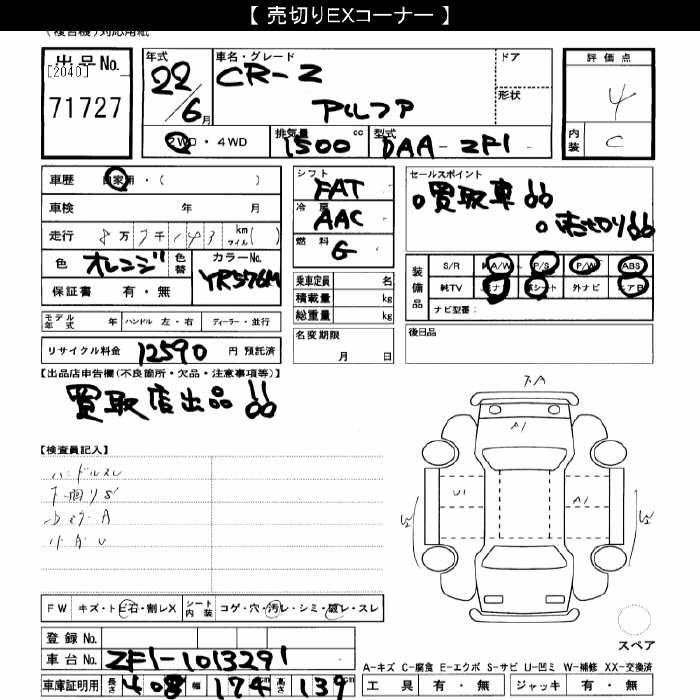 【 売切りEXコーナー 】
(複合機)対応用紙
出品No.
[2040]
71727
年式
22/6月
車名・グレード
CR-Z
アルファ
ドア
形状
2WD・4WD
排気量
1500 cc
型式
DAA-ZF1
評価点
4
内装
C
車歴 自家用・( )
車検 年 月
走行 8万7千143 km マイル( )
色 オレンジ 色替
カラーNo.
YR576M
保証書 有・無
シフト
FAT
冷房
AAC
燃料
G
乗車定員 名
積載量 kg
総重量 kg
セールスポイント
。買取車!!
。売切り!!
装備品
S/R A/W P/S P/W ABS
純TV 純ナビ 革シート 外ナビ エアB
ナビ型番:
モデル年式 年 ハンドル 左・右 ディーラー・並行
名変期限
月 日
後日品
リサイクル料金 12590 円 預託済
【出品店申告欄(不良箇所・欠品・注意事項等)】
買取店出品!!
【検査員記入】
ハンドルスレ
A1
U1
A1
FW キズ・トビ石・割レX
シート内装 コゲ・穴・汚レ・シミ・破レ・スレ
スペア
登録No.
車台No. ZF1-1013291
車庫証明用 長さ 408 幅 174 cm 高さ 139 cm
A-キズ C-腐食 E-エクボ S-サビ U-凹ミ W-補修 XX-交換済
工具 有・無 ジャッキ 有・無